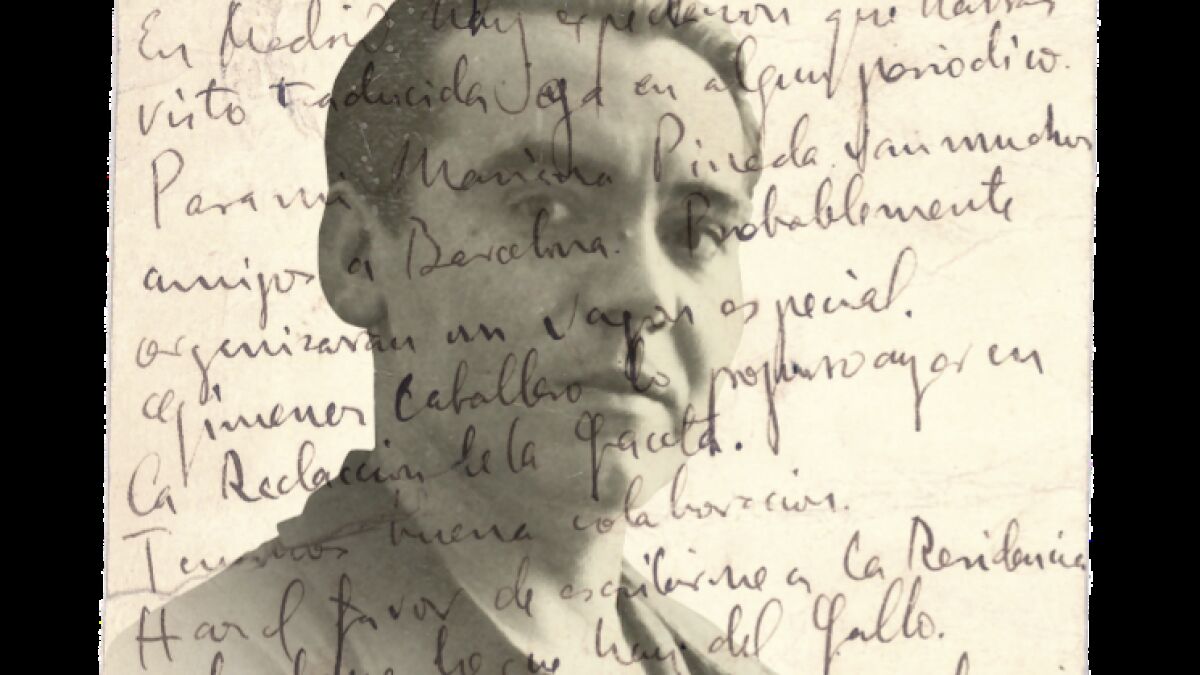 En Madrid hay expectación que habrás
visto traducida ya en algun periodico.
Para mi Mariana Pineda van muchos
amigos a Barcelona. Probablemente
organizaran un vagon especial.
Gimenez Caballero lo propuso ayer en
la Redaccion de la Gaceta.
Tenemos buena colaboracion.
Haz el favor de escribirme a la Residencia
lo que hay del Gallo.